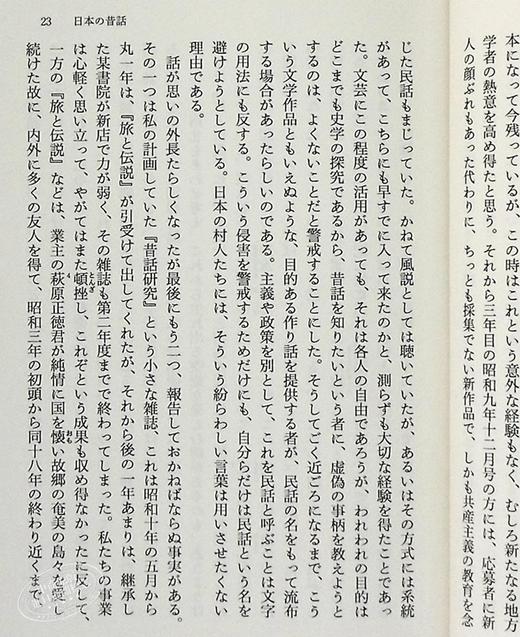 本になって今残っているが、この時はこれという意外な経験もなく、むしろ新たなる地方
学者の熱意を高め得たと思う。それから三年目の昭和九年十二月号の方には、応募者に新
人の顔ぶれもあった代わりに、ちっとも採集でない新作品で、しかも共産主義の教育を念
23 日本の昔話
じた民話もまじっていた。かねて風説としては聴いていたが、あるいはその方式には系統
があって、こちらにも早すでに入って来たのかと、測らずも大切な経験を得たことであっ
た。文芸にこの程度の活用があっても、それは各人の自由であろうが、われわれの目的は
どこまでも史学の探究であるから、昔話を知りたいという者に、虚偽の事柄を教えようと
するのは、よくないことだと警戒することにした。そうしてごく近ごろになるまで、こう
いう文学作品ともいえぬような、目的ある作り話を提供する者が、民話の名をもって流布
する場合があったらしいのである。主義や政策を別として、これを民話と呼ぶことは文字
の用法にも反する。こういう侵害を警戒するためだけにも、自分らだけは民話という名を
避けようとしている。日本の村人たちには、そういう紛らわしい言葉は用いさせたくない
理由である。
話が思いの外長たらしくなったが最後にもう二つ、報告しておかねばならぬ事実がある。
その一つは私の計画していた『昔話研究』という小さな雑誌、これは昭和十年の五月から
丸一年は、『旅と伝説』が引受けて出してくれたが、それから後の一年あまりは、継承し
た某書院が新店で力が弱く、その雑誌も第二年度までで終わってしまった。私たちの事業
は心軽く思い立って、やがてはまた頓挫し、これぞという成果も収め得なかったに反して、
一方の『旅と伝説』などは、業主の萩原正徳君が純情に国を懐い故郷の奄美の島々を愛し
続けた故に、内外に多くの友人を得て、昭和三年の初頭から同十八年の終わり近くまで